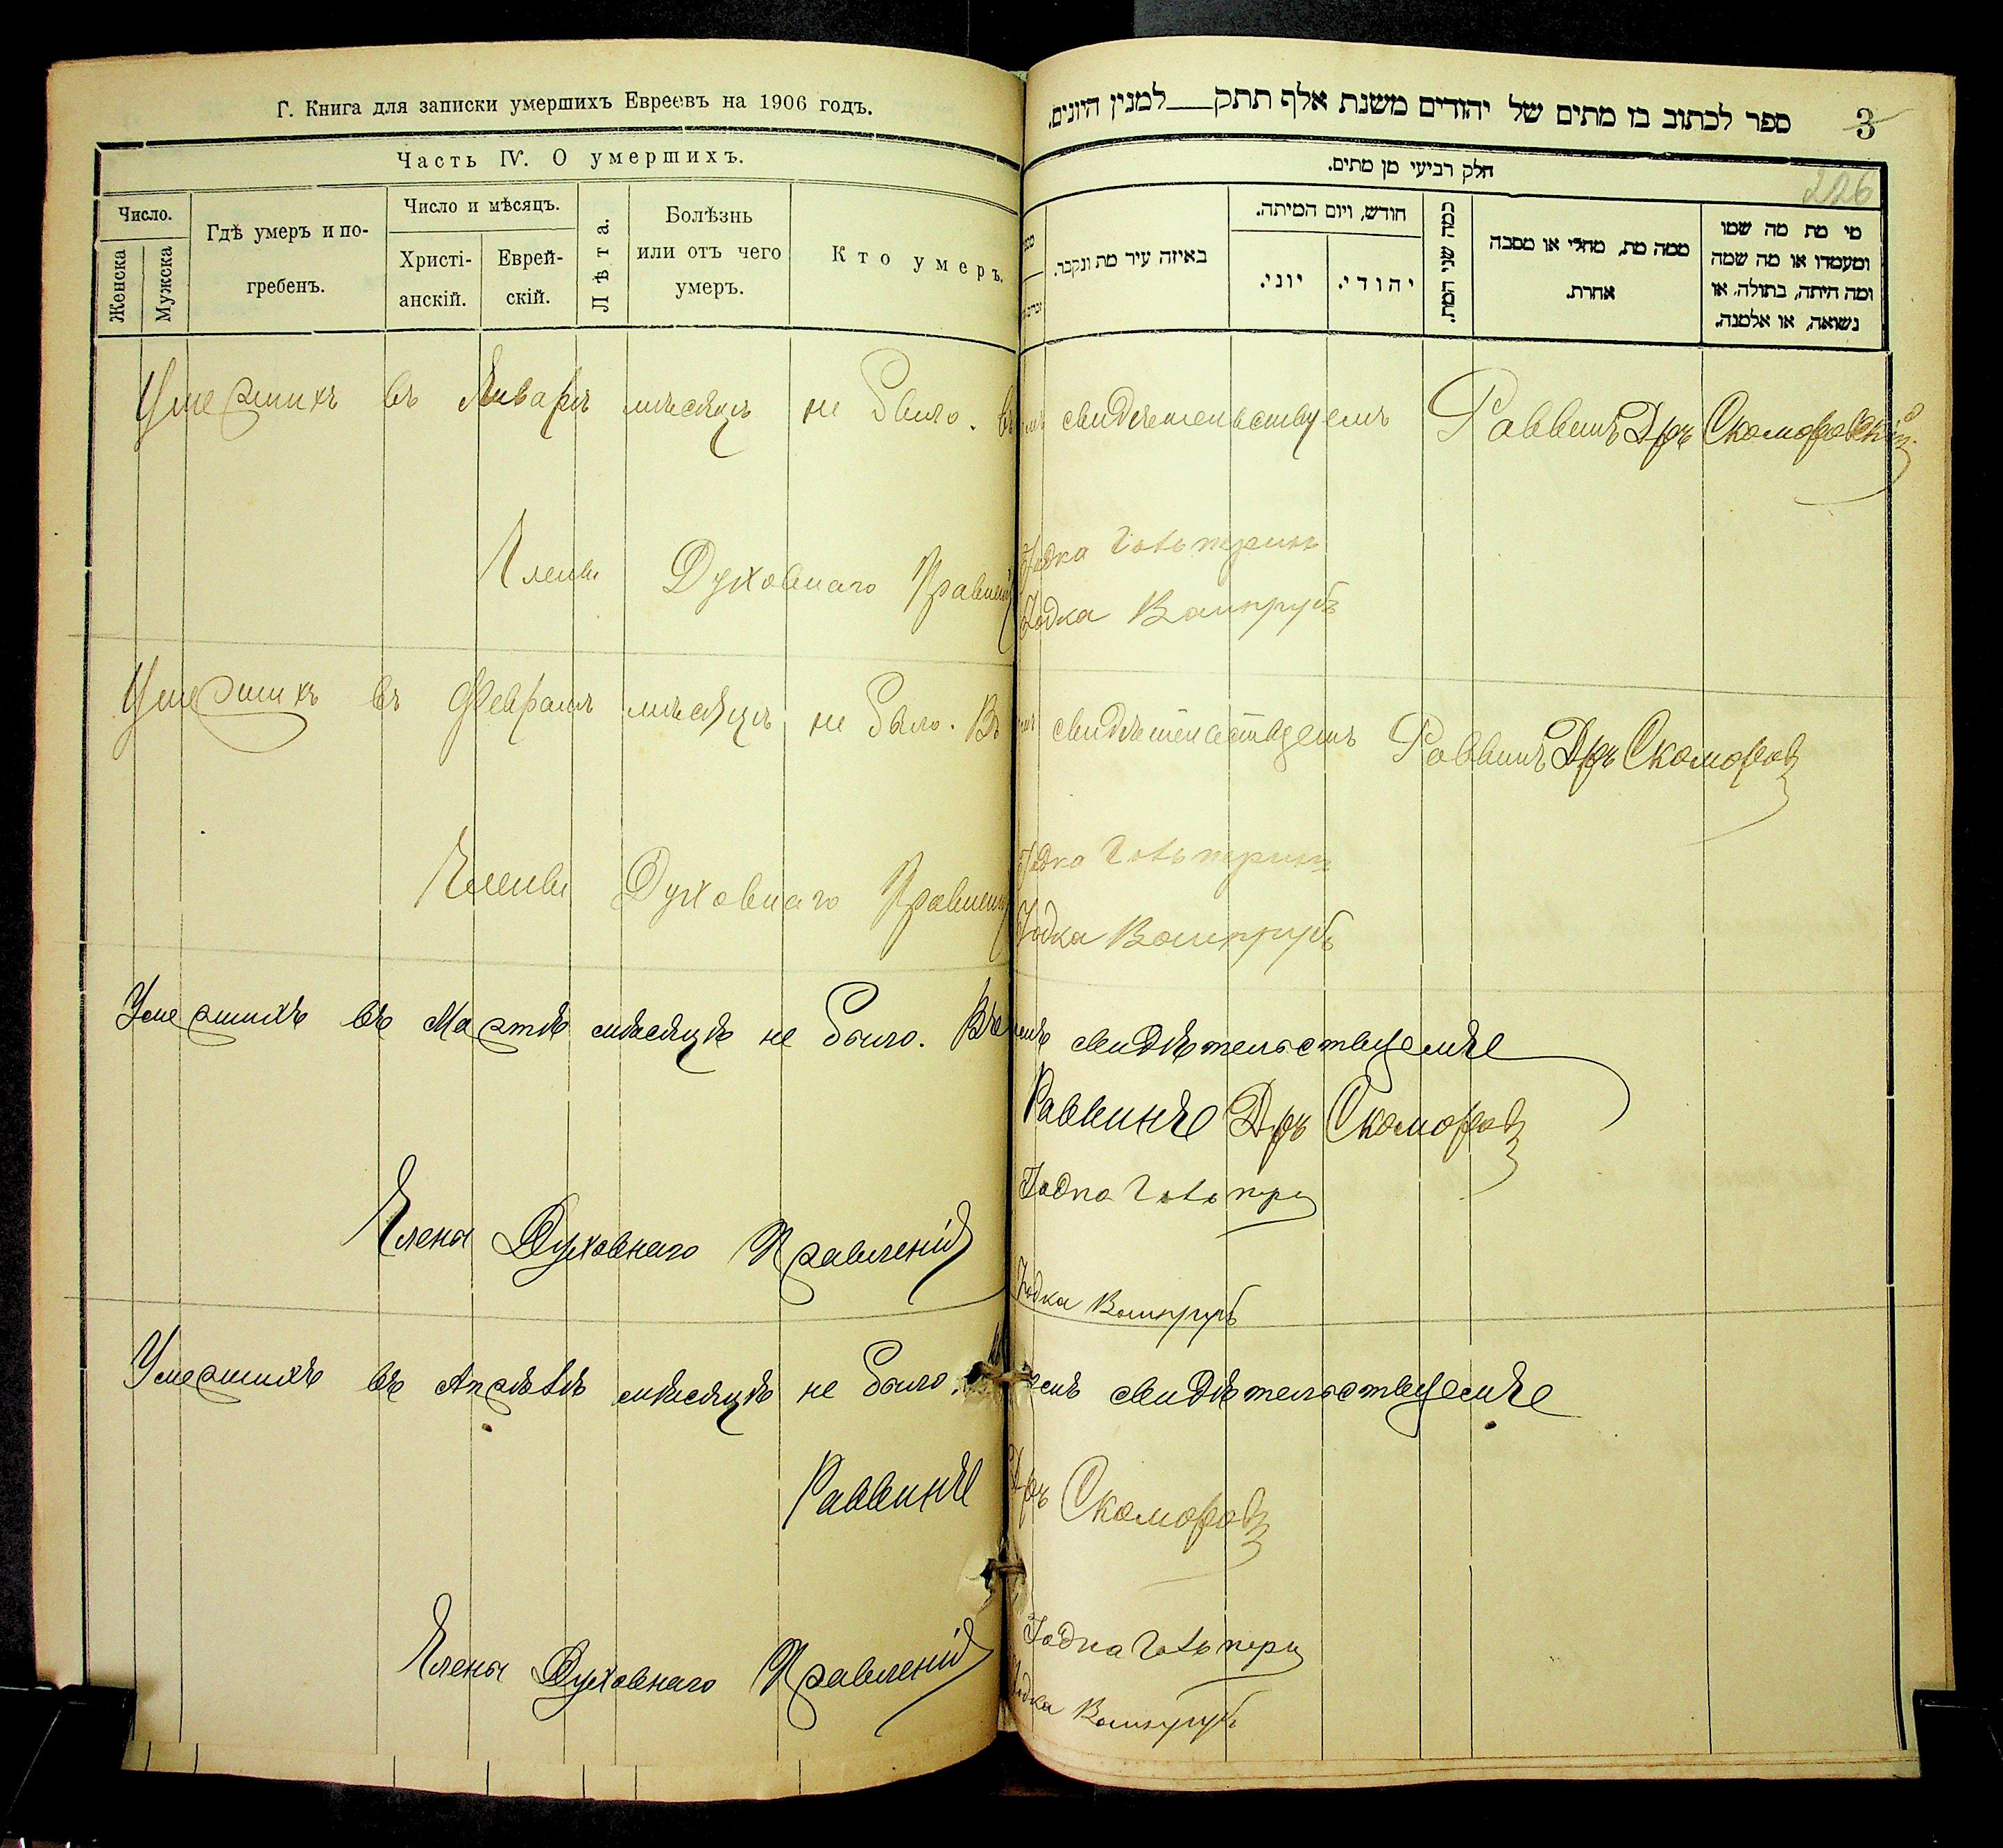 Г. Книга для записки умершихъ Евреевъ на 1906 годъ.
Часть IV. О умершихъ.
Число.
Женска
Мужска
Гдѣ умеръ и по-
гребенъ.
Число и мѣсяцъ.
Христі-
анскій.
Еврей-
скій.
Лѣта.
Болѣзнь
или отъ чего
умеръ.
Кто умеръ.
ספר לכתוב בו מתים של יהודים משנת אלף תתק למנין היונים.
3
226
חלק רביעי מן מתים.
באיזה עיר מת ונקבר.
חודש, ויום המיתה.
יוני.
יהודי.
כמה שני המת.
ממה מת, מחלי או מסבה
אחרת.
מי מת מה שמו
ומעמדו או מה שמה
ומה היתה, בתולה, או
נשואה, או אלמנה.
Умершихъ въ Январѣ мѣсяцѣ не было. Въ чемъ свидѣтельствуемъ Раввинъ Дръ Скоморовскій
Члены Духовнаго Правленія
Іодка
Іодка
Умершихъ въ Февралѣ мѣсяцѣ не было. Въ чемъ свидѣтельствуемъ Раввинъ Дръ Скоморов
Члены Духовнаго Правленія
Іодка
Іодка
Умершихъ въ Мартѣ мѣсяцѣ не было. Въ чемъ свидѣтельствуемъ
Раввинъ Дръ Скоморов
Іодка
Члены Духовнаго Правленія
Іодка
Умершихъ въ Апрѣлѣ мѣсяцѣ не было. Въ чемъ свидѣтельствуемъ
Раввинъ Дръ Скоморов
Іодка
Члены Духовнаго Правленія
Іодка